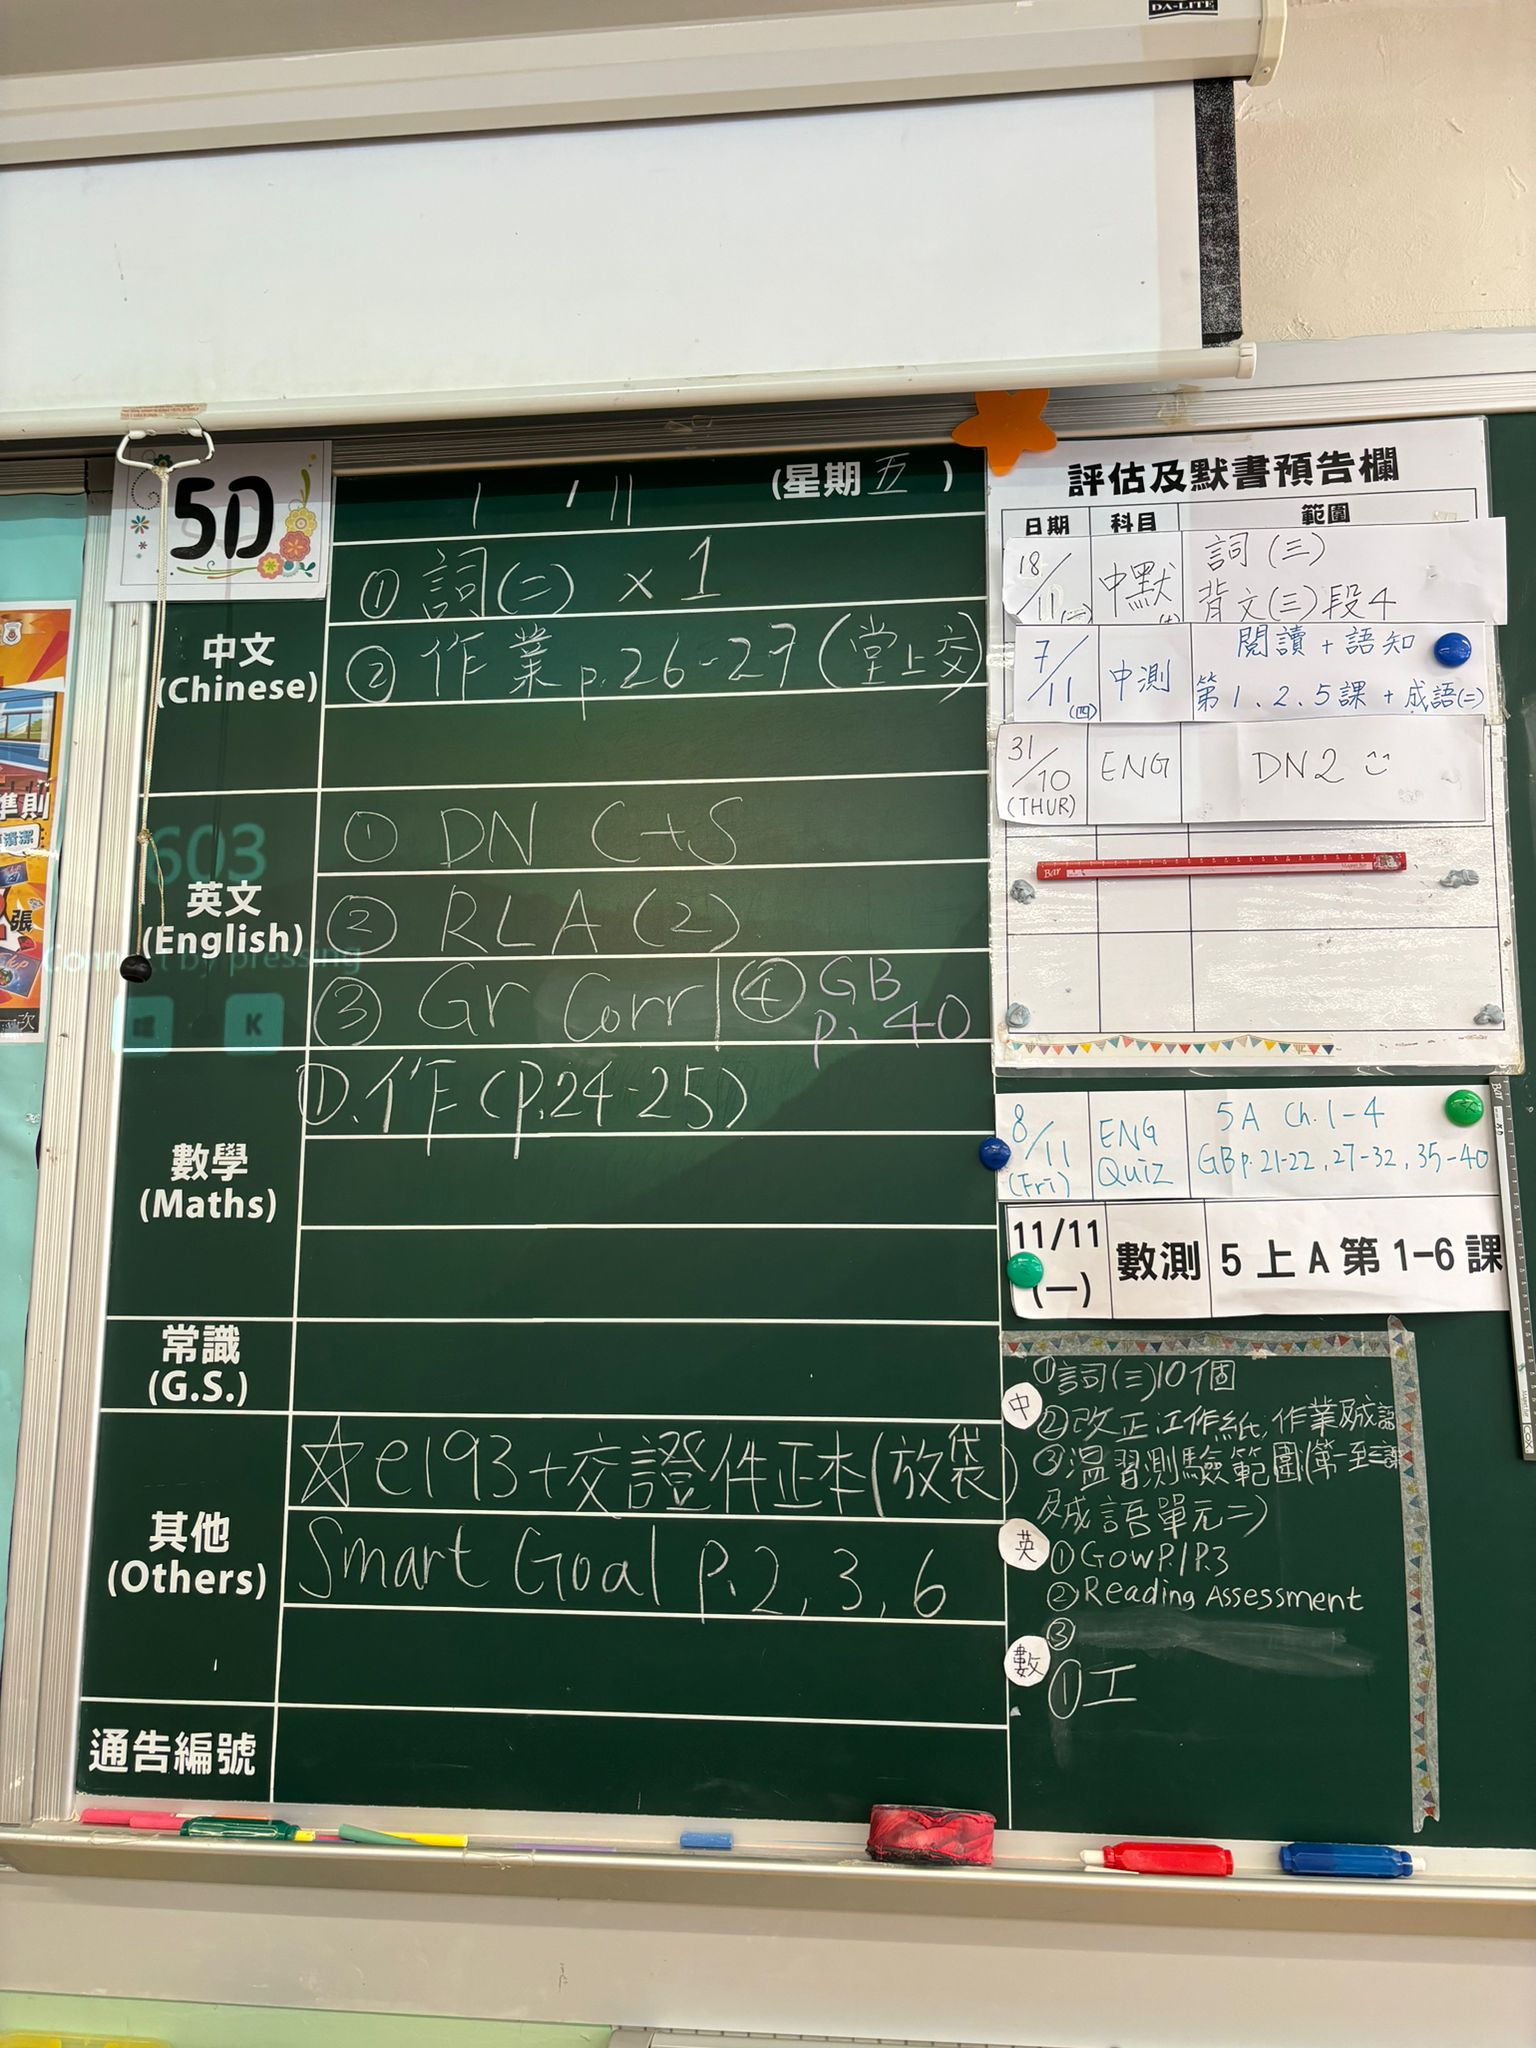 DA-LITE
5D
1 / 11 (星期五)
中文
(Chinese)
① 詞(二) × 1
② 作業 p.26-27 (堂上交)
603
Connect by pressing
K
英文
(English)
① DN C+S
② RLA (2)
③ Gr Corr | ④ GB p. 40
數學
(Maths)
①.作(p.24-25)
常識
(G.S.)
其他
(Others)
☆e193+交證件正本(放袋)
Smart Goal p.2, 3, 6
通告編號
評估及默書預告欄
日期 科目 範圍
18/11 中默 詞(三)
背文(三)段4
7/11(四) 中測 閱讀+語知
第1、2、5課+成語(二)
31/10 (THUR) ENG DN2
8/11 (Fri) ENG QUIZ 5A Ch.1-4
GB p.21-22, 27-32, 35-40
11/11 (一) 數測 5上A第1-6課
中
①詞(三)10個
②改正工作紙,作業
③溫習測驗範圍(第一至三課
及成語單元二)
英
①GOWP.1P.3
②Reading Assessment
③
數
①工
準則
清潔
張
一次